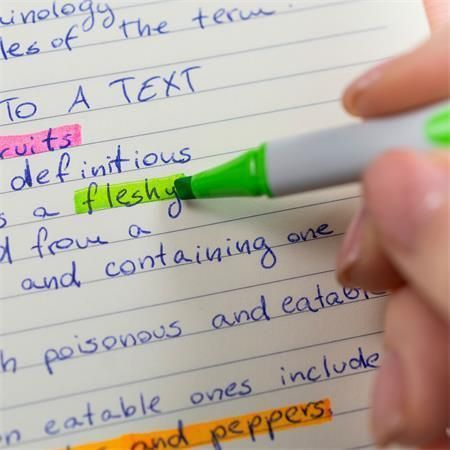 les of the term.
TO A TEXT
ruits
definitious
s a fleshy
d from a
and containing one
h poisonous and eatabl
n eatable ones include
and peppers.